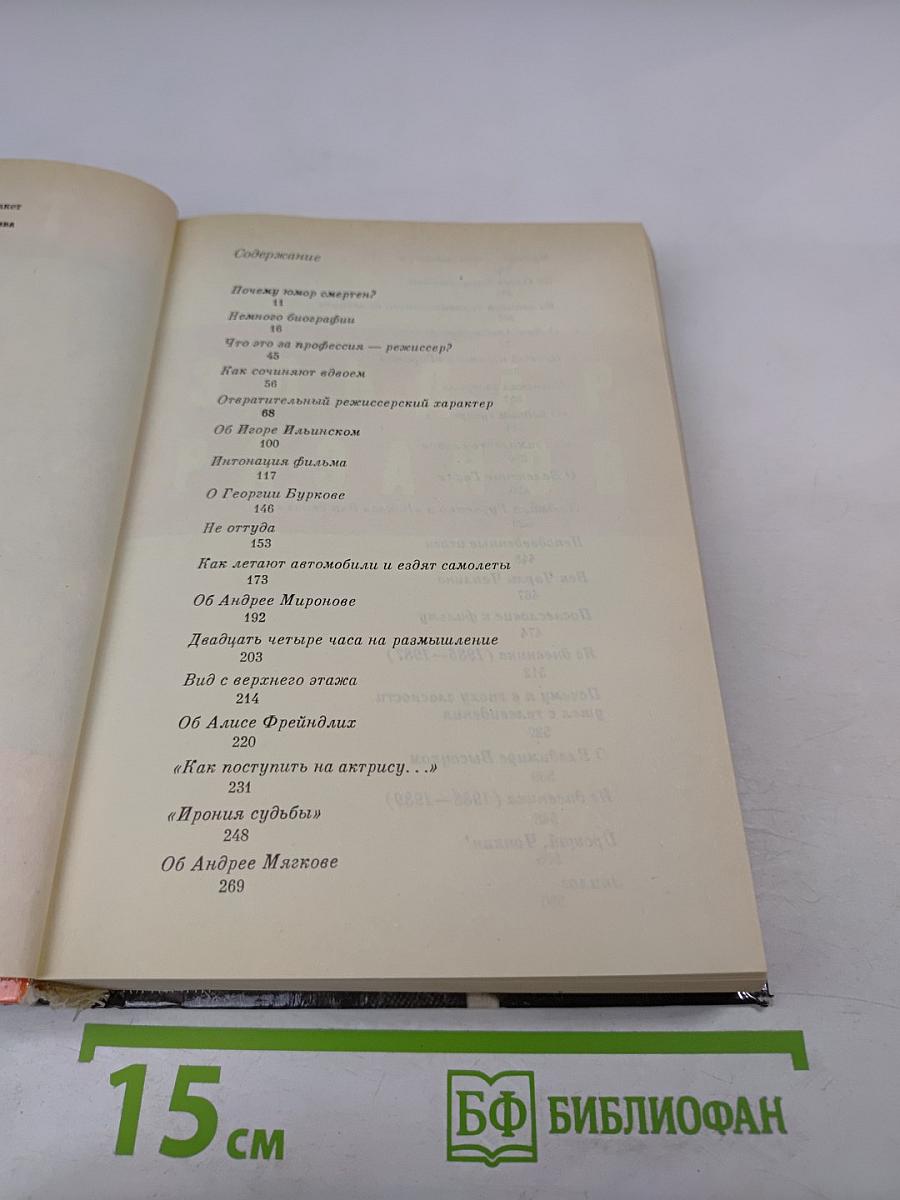 Содержание
Почему юмор смертен?
11
Немного биографии
16
Что это за профессия — режиссер?
45
Как сочиняют вдвоем
56
Отвратительный режиссерский характер
68
Об Игоре Ильинском
100
Интонация фильма
117
О Георгии Буркове
146
Не оттуда
153
Как летают автомобили и ездят самолеты
173
Об Андрее Миронове
192
Двадцать четыре часа на размышление
203
Вид с верхнего этажа
214
Об Алисе Фрейндлих
220
«Как поступить на актрису...»
231
«Ирония судьбы»
248
Об Андрее Мягкове
269
15 см
БФ БИБЛИОФАН